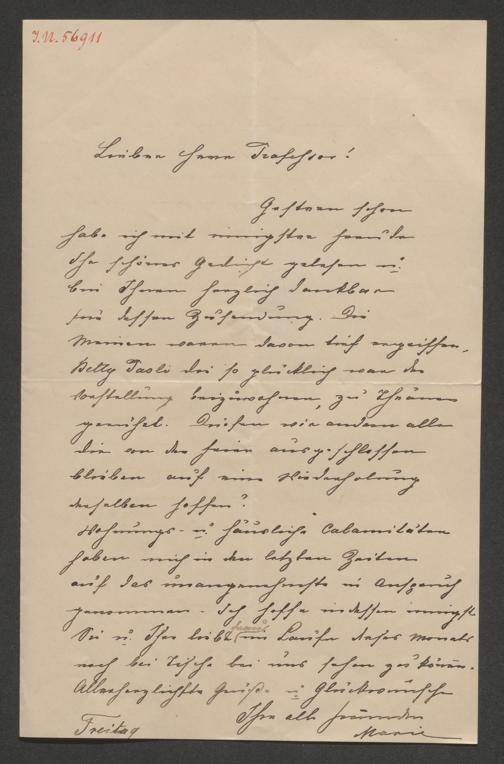 I.N. 56911
Lieber Herr Professor!
Gestern schon
habe ich mit innigster Freude
Ihr schönes Gedicht gelesen u
bin Ihnen herzlich dankbar
für dessen Zusendung. Die
Meinen waren davon tief ergriffen,
Betty Paoli die so glücklich war der
Vorstellung beizuwohnen, zu Thränen
gerührt. Dürfen wir andern alle
die von der Feier ausgeschlossen
blieben auf eine Wiederholung
derselben hoffen?
Wohnungs- u häusliche Calamitäten
haben mich in den letzten Zeiten
auf das unangenehmste in Anspruch
genommen. Ich hoffe indessen innigst
Sie u Ihre liebe Frau im Laufe dieses Monats
noch bei Tische bei uns sehen zu können.
Allerherzlichste Grüße u Glückwünsche
Ihre alte Freundin
Freitag Marie